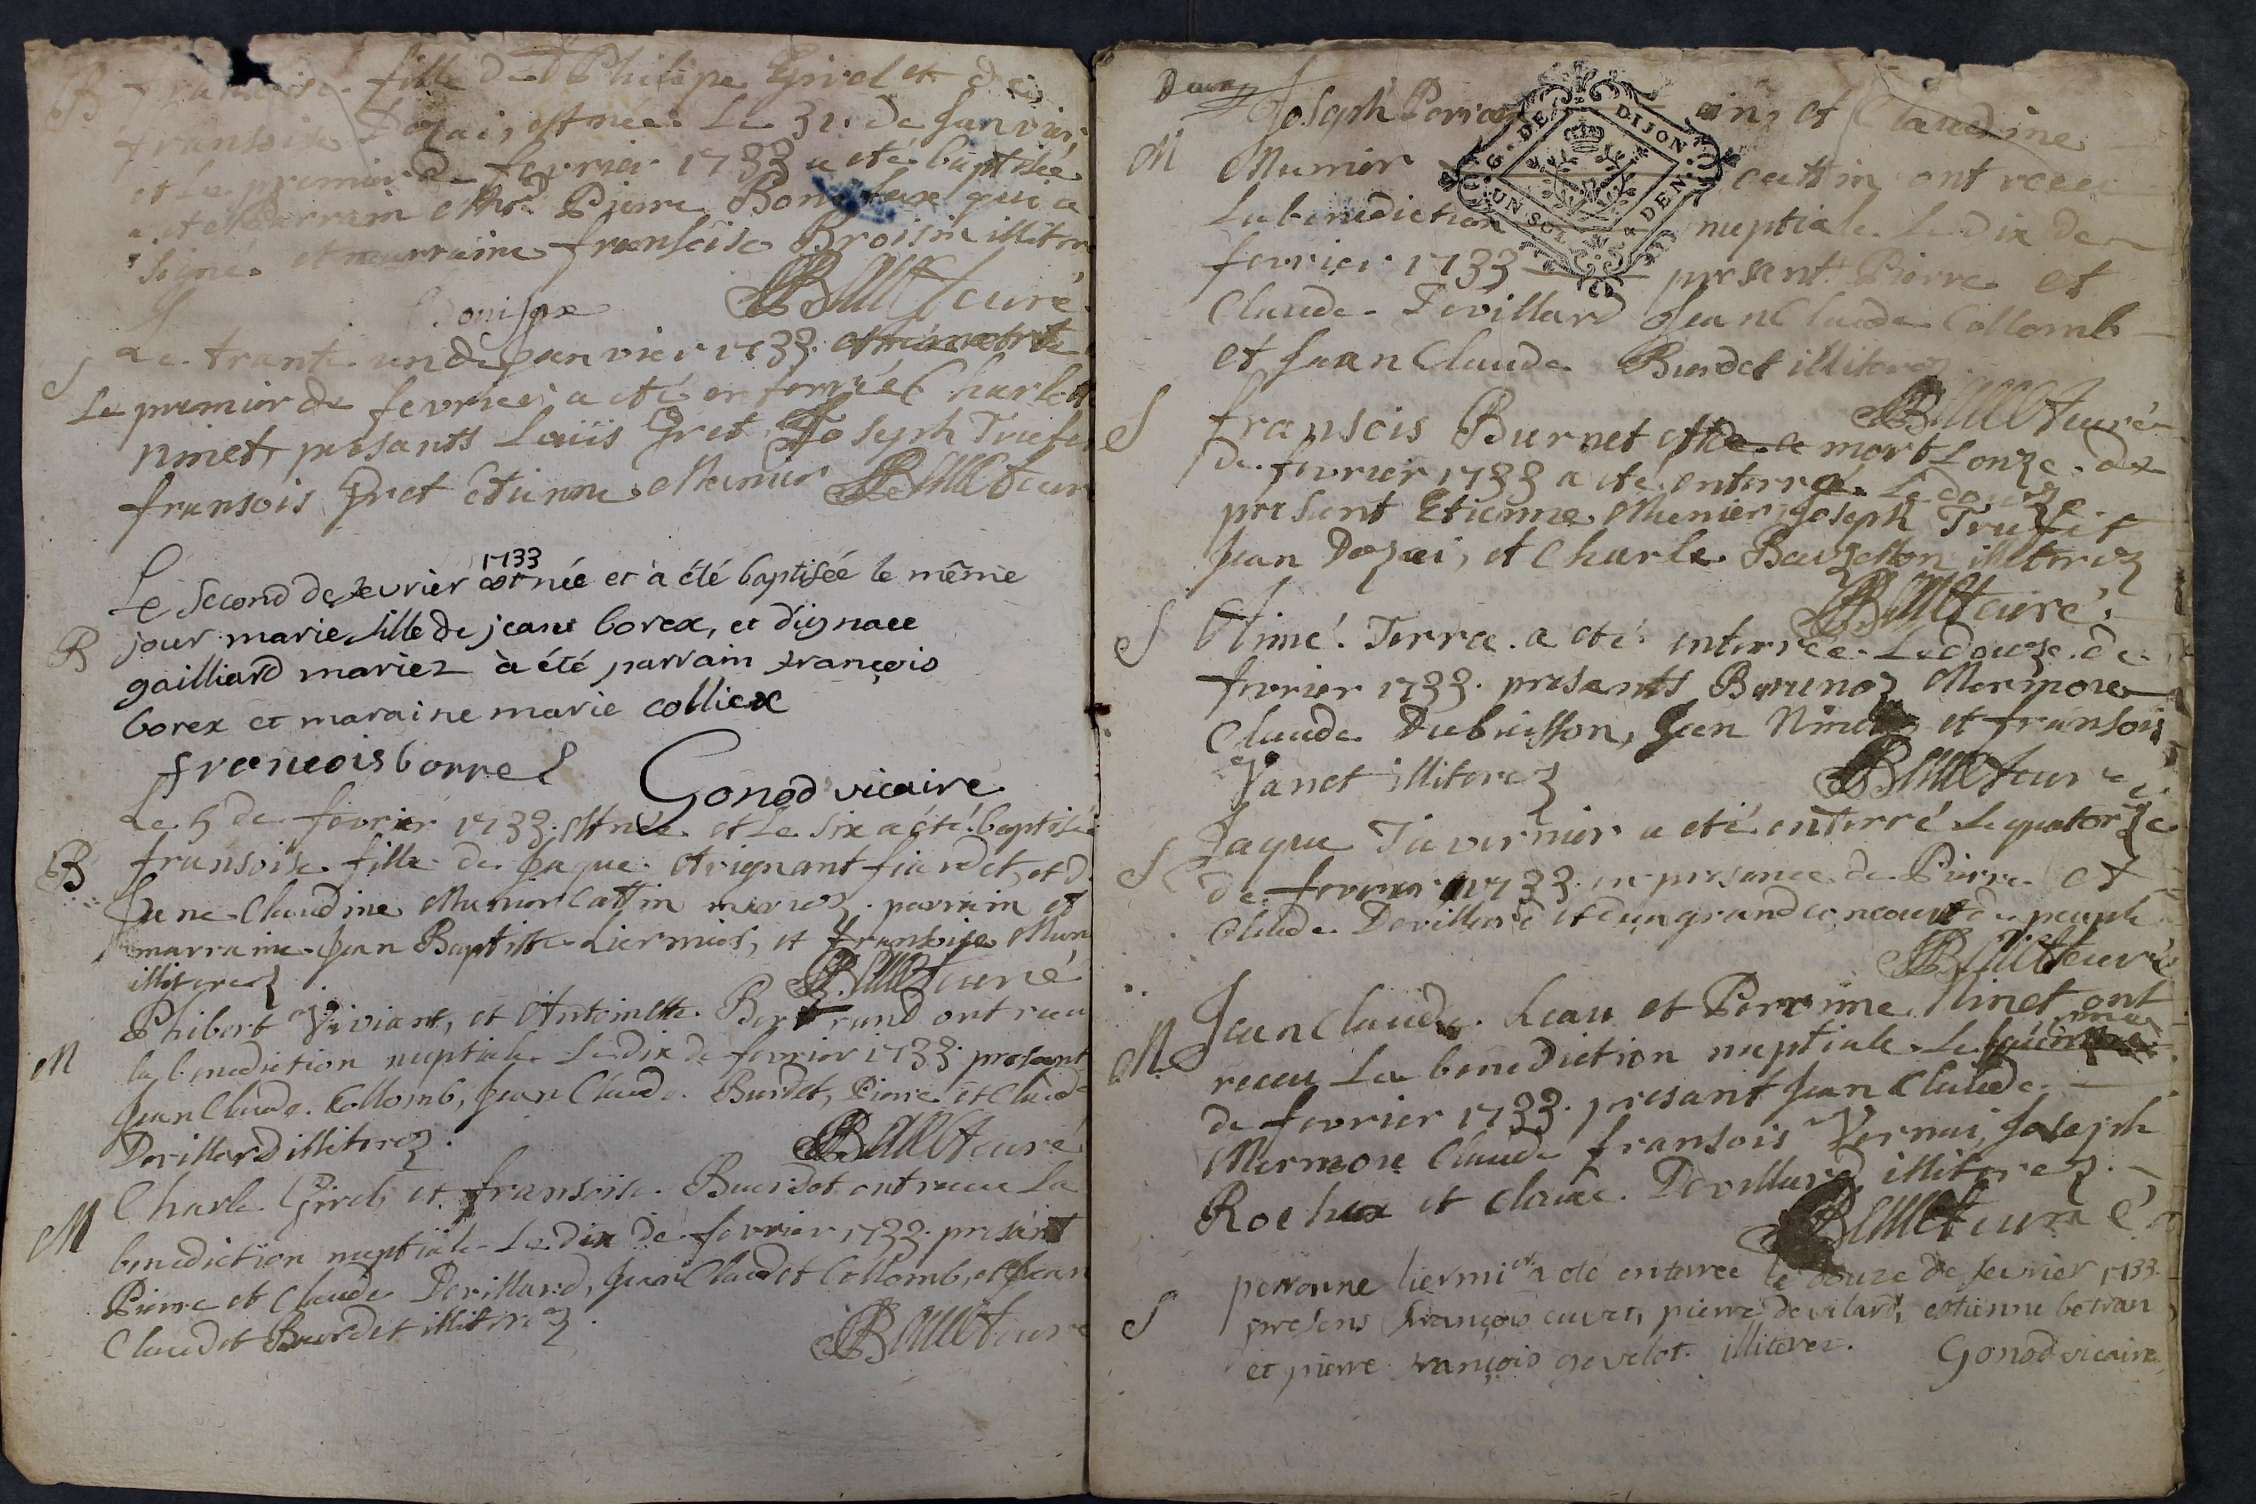 B fille de Philipe Girod et de
fransoise Dozai, est née Le 31. de Janvier,
et Le premier de fevrier 1733 a eté baptisée
a eté Parrain Pierre Bonifax qui a
signé et marraine fransoise Broisin illitere
Bonifax curé
Le trante un de Janvier 1733.
S Le premier de fevrier a eté enterrée Charlotte
ninet, presants Loüis Gret, Joseph
fransois Gret etienne Munier curé
1733
Le second de fevrier est née et à été baptisée le même
B jour marie fille de jean borex, et dignace
gailliard mariez à été parrain françois
borex et maraine marie colliex
francois borrel
Gonod vicaire
Le 5 de fevrier 1733. est née et Le six a eté baptisée
B fransoise fille de Jaque et d
Jene Claudine Munier Cattin mariez. parrain et
marraine Jean Baptiste Liermier, et fransoise Mun
illiterez curé
Phibert Viviant, et Antoinette Bertrand ont receu
M la benediction nuptiale Le dix de fevrier 1733. presant
Jean Claude Collomb, Jean Claude Burdet, Pierre et Claude
Devillard illiterez. curé
Charle Girod, et fransoise Buerdet ont receu La
M benediction nuptiale Le dix de fevrier 1733. presant
Pierre et Claude Devillard, Jean Claude Collomb, et Jean
Claude Burdet illiterez. curé
Deux
Joseph et Claudine
M Munier Cattin ont receu
G. DE DIJON
UN SOL DEN.
La benediction nuptiale Le dix de
fevrier 1733 present Pierre et
Claude Devillard Jean Claude Collomb
et Jean Claude Burdet illiterez
curé
S fransois Burnet est mort Lonze de
de fevrier 1733 a eté enterré Le douze
present Etienne Munier, Joseph Trufit
Jean Dozai, et Charle illiterez
curé
S Aimé Terra a eté enterrée Le douze de
fevrier 1733. presants Mermone
Claude Dubuisson, Jean et fransois
Janet illiterez curé
S Jaque Tavernier a eté enterré Le quatorze
de fevrier 1733. en presence de Pierre et
Claude Devillard et d'un grand concourt de peuple
curé
Jean Claude Leau et Perrine Ninet ont
M receu La benediction nuptiale Le
de fevrier 1733. presant Jean Claude
Mermone Claude fransois Vernai, Joseph
Rochex et Claude Devillard illiterez.
curé
perronne liermier a eté enterree le douze de fevrier 1733
S presens françois cuvet, pierre devilard, estienne betran
et pierre françois gevelot illiterez. Gonod vicaire